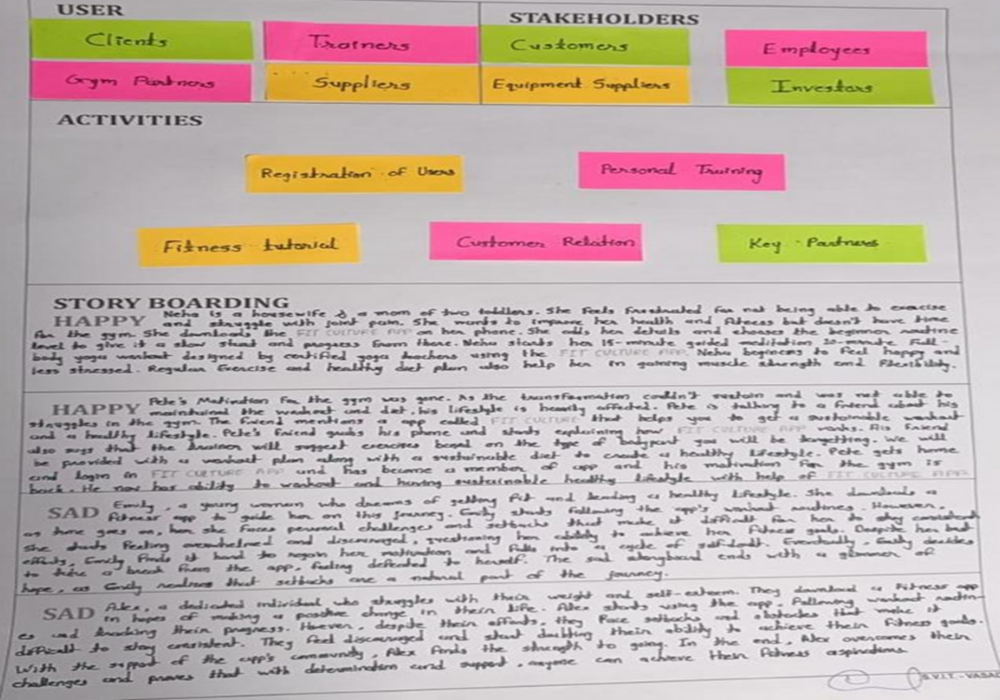 USER
STAKEHOLDERS
Clients
Trainers
Customers
Employees
Gym Partners
Suppliers
Equipment Suppliers
Investors
ACTIVITIES
Registration of Users
Personal Training
Fitness tutorial
Customer Relation
Key Partners
STORY BOARDING
HAPPY Neha is a housewife & a mom of two toddlers. She feels frustrated for not being able to exercise
and struggle with joint pain. She wants to improve her health and fitness but doesn't have time
for the gym. She downloads the FIT CULTURE APP on her phone. She adds her details and chooses the beginner routine
level to give it a slow start and progress from there. Neha starts her 15-minute guided meditation 20-minute Full-
body yoga workout designed by certified yoga teachers using the FIT CULTURE APP. Neha beginess to feel happy and
less stressed. Regular Exercise and healthy diet plan also help her in gaining muscle strength and flexibility.
HAPPY Pete's Motivation for the gym was gone. As the transformation couldn't sustain and was not able to
maintained the workout and diet, his lifestyle is heavily affected. Pete is talking to a friend about his
struggles in the gym. The friend mentions a app called FIT CULTURE that helps you to get a sustainable workout
and a healthy lifestyle. Pete's friend grabs his phone and starts explaining how FIT CULTURE APP works. His friend
also says that the trainer will suggest exercises based on the type of bodypart you will be targetting. We will
be provided with a workout plan along with a sustainable diet to create a healthy lifestyle. Pete gets home
and login in FIT CULTURE APP and has become a member of app and his motivation for the gym is
back. He now has ability to workout and having sustainable healthy lifestyle with help of FIT CULTURE APP
SAD Emily, a young women who dreams of getting fit and leading a healthy lifestyle. She downloads a
fitness app to guide her on this journey. Emily starts following the app's workout routines. However,
as time goes on, her she faces personal challenges and setbacks that make it difficult for her to stay consistent
She starts feeling overwhelmed and discouraged, questioning her ability to achieve her fitness goals. Despite her best
efforts, Emily finds it hard to regain her motivation and falls into a cycle of self-doubt. Eventually, Emily decides
to take a break from the app, feeling defeated to herself. The sad storyboard ends with a glimmer of
hope, as Emily realizes that setbacks are a natural part of the journey.
SAD Alex, a dedicated individual who struggles with their weight and self-esteem. They download a fitness app
in hopes of making a positive change in their life. Alex starts using the app, following workout routin-
es and tracking their progress. However, despite their efforts, they face setbacks and obstacles that make it
difficult to stay consistent. They feel discouraged and start doubting their ability to achieve their fitness goals.
With the support of the app's community, Alex finds the strength to going. In the end, Alex overcomes their
challenges and proves that with determination and support, anyone can achieve their fitness aspirations
S.V.I.T - VASAD